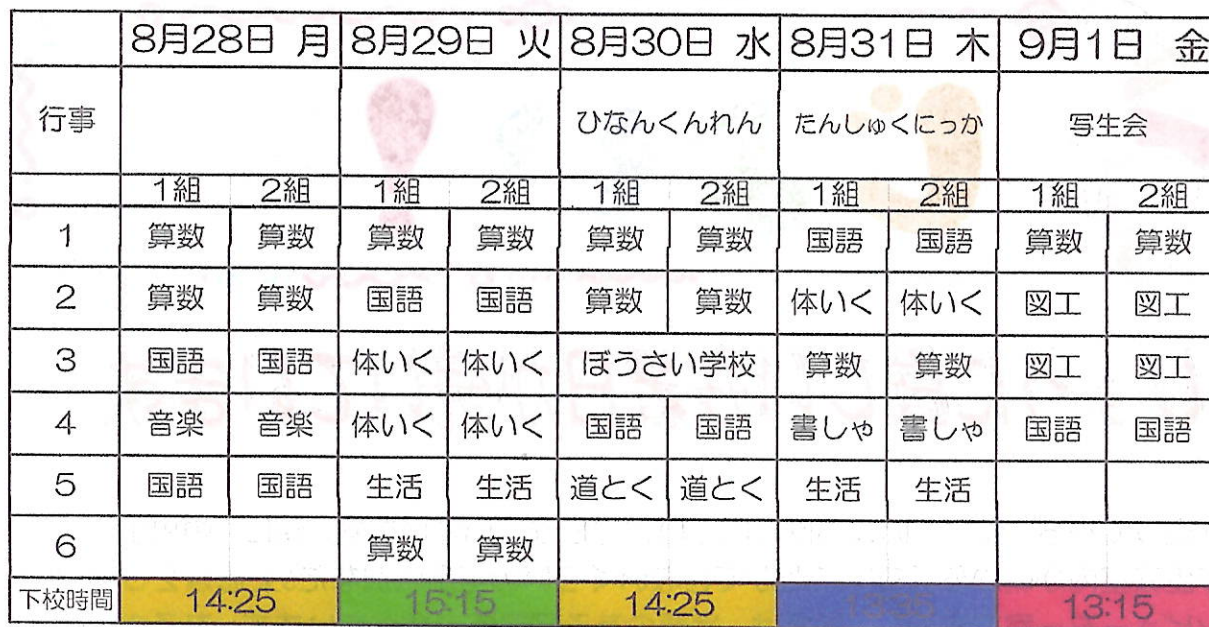 8月28日 月 8月29日 火 8月30日 水 8月31日 木 9月1日 金
行事 ひなんくんれん たんしゅくにっか 写生会
1組 2組 1組 2組 1組 2組 1組 2組 1組 2組
1 算数 算数 算数 算数 算数 算数 国語 国語 算数 算数
2 算数 算数 国語 国語 算数 算数 体いく 体いく 図工 図工
3 国語 国語 体いく 体いく ぼうさい学校 算数 算数 図工 図工
4 音楽 音楽 体いく 体いく 国語 国語 書しゃ 書しゃ 国語 国語
5 国語 国語 生活 生活 道とく 道とく 生活 生活
6 算数 算数
下校時間 14:25 15:15 14:25 13:15